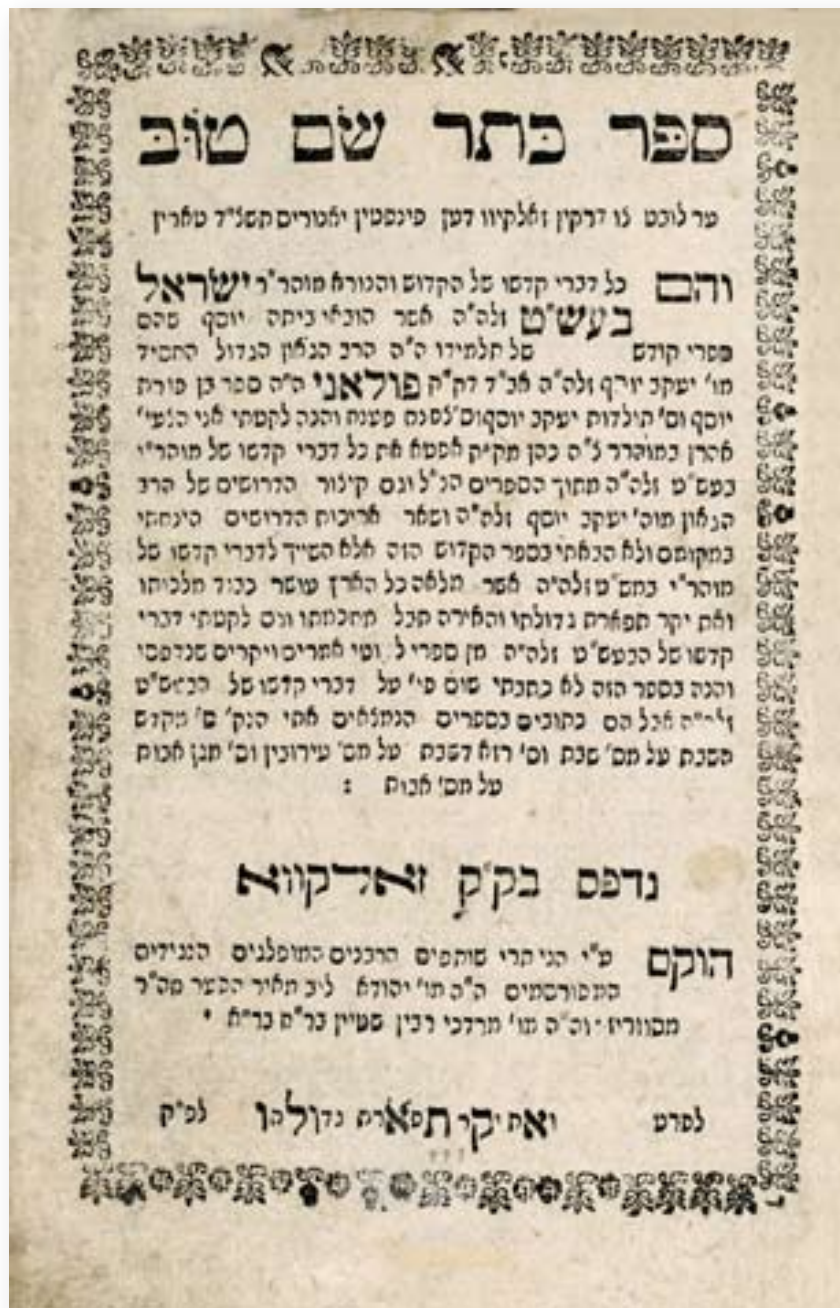 ספר כתר שם טוב
ער לובט צו דרקין זאלקיוו דען פינפטין יאנוריס תשל"ד טארין
והם כל דברי קדשו של הקדוש והנורא מוהר"ר ישראל
בעש"ט זלה"ה אשר הובאו ביתה יוסף שהם
ספרי קודש של תלמידו ה"ה הרב הגאון הגדול החסיד
מו' יעקב יוסף זלה"ה אב"ד דק"ק פולאני ה"ה ספר בן פורת
יוסף וס' תולדות יעקב יוסף וס' צפנת פענח והנה לקטתי אני הצעי'
אהרן במוהרר צ"ה כהן מק"ק אפטא את כל דברי קדשו של מוהר"י
בעש"ט זלה"ה מתוך הספרים הנ"ל וגם קיצור הדרושים של הרב
הגאון מוה' יעקב יוסף זלה"ה ושאר אריכות הדרושים הינחתי
במקומם ולא הבאתי בספר הקדוש הזה אלא השייך לדברי קדשו של
מוהר"י בעש"ט זלה"ה אשר מלאה כל הארץ עושר כבוד מלכותו
ואת יקר תפארת גדולתו והאירה תבל מחכמתו וגם לקטתי דברי
קדשו של הבעש"ט זלה"ה מן ספרי ל וטי אמרים ויקרים שנדפסו
והנה בספר הזה לא כתבתי שום פי' על דברי קדשו של הבעש"ט
זלה"ה אבל הם כתובים בספרים הנמצאים אתי הנק' ס' מקדש
השבת על מס' שבת וס' רזא דשבת על מס' עירובין וס' מגן אבות
על מס' אבות :
נדפס בק"ק זאלקווא
הוקם ע"י הני תרי שותפים הרבנים המופלגים הנגידים
המפורסמים ה"ה מו' יהודא ליב מאיר הפער מה"ר
מרדכי רבין שטיין
לפרט ואת יקר תפארת גדולתו לפ"ק